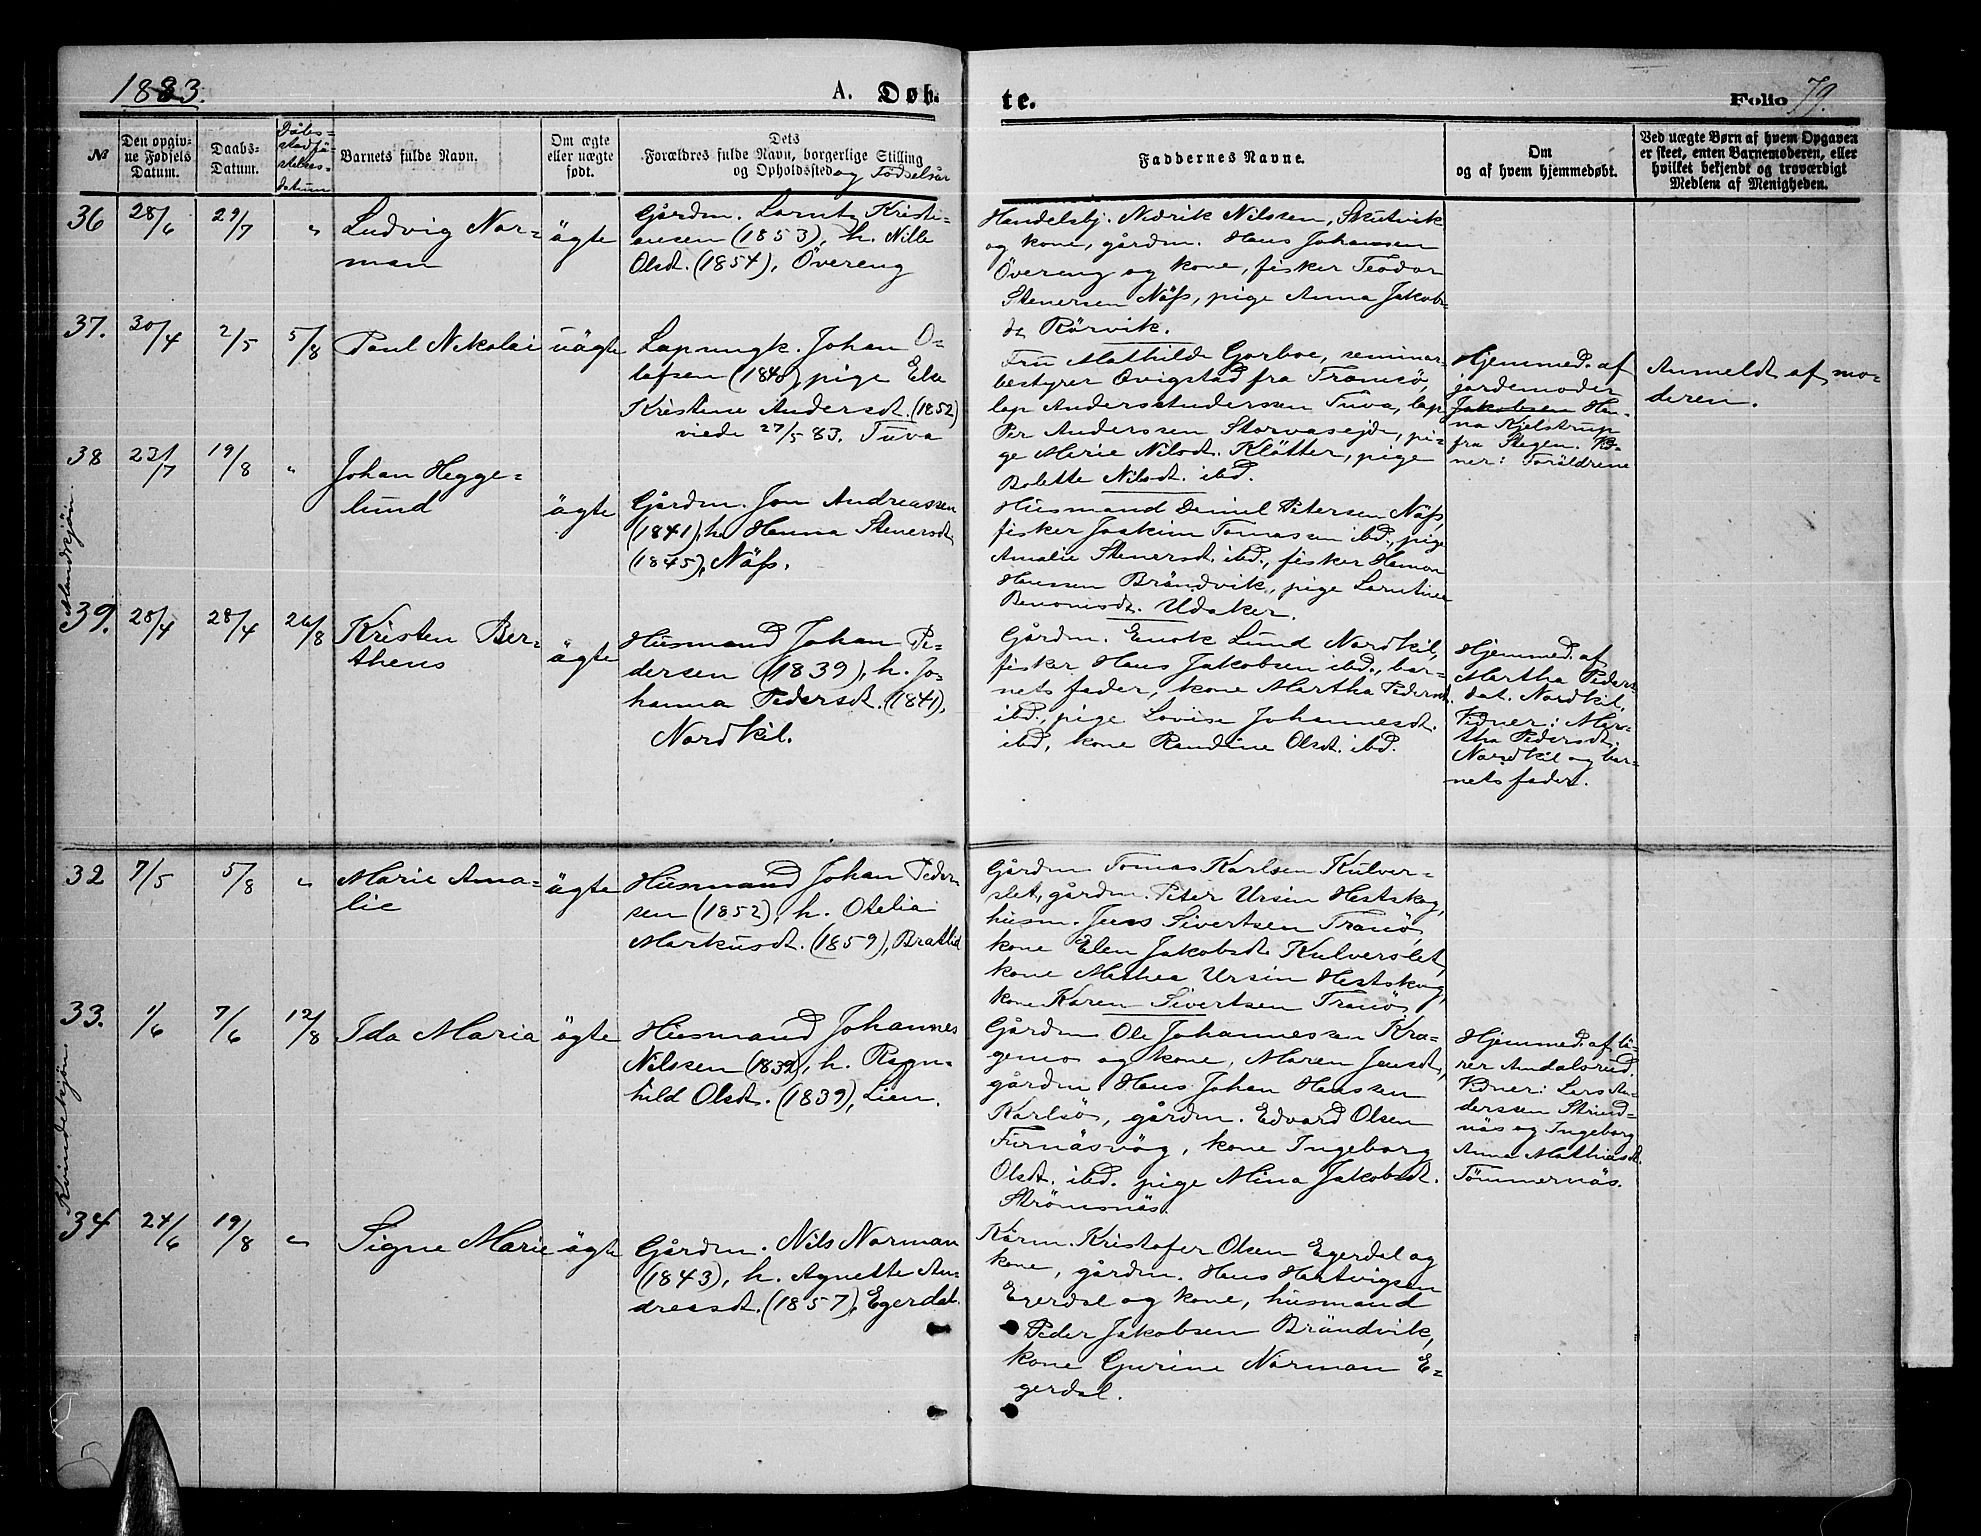 1883.
A. Døb-
te.
Folio 79.
№
Den opgiv-
ne Fødsels
Datum.
Daabs-
Datum.
Dåbs-
stadfä-
stelses-
datum
Barnets fulde Navn.
Om ægte
eller uægte
født.
Dets
Forældres fulde Navn, borgerlige Stilling
og Opholdssted og Födselsår
Faddernes Navne.
Om
og af hvem hjemmedøbt.
Ved uægte Børn af hvem Opgaven
er skeet, enten Barnemoderen, eller
hvilket bekjendt og troværdigt
Medlem af Menigheden.
Mandkjön.
36
28/6
29/7
"
Ludvig Nor-
man
ägte
Gårdm. Larntz Kristi-
ansen (1853), h. Nille
Olsdt. (1854), Övereng
Handelsbj. Nidrik Nilssen, Skutvik
og kone, gårdm. Hans Johansen
Övereng og kone, fisker Teodor
Stenersen Näss, pige Anna Jakobs-
dt Rörvik.
37.
30/4
2/5
5/8
Paul Nikolai
uägte
Lapungk. Johan O-
lafsen (1840), pige Elen
Kristine Andersdt. (1852)
viede 27/5 83. Tuva
Fru Mathilde Gorboe, seminar-
bestyrer Qvigstad fra Tromsö,
lap Anders Anderssen Tuva, lap
Per Anderssen Storvasejde, pi-
ge Marie Nilsdt. Klätter, pige
Bolette Nilsdt. ibd.
Hjemmed. af
jordemoder
Jakobsen Han-
na Kjelstrup
fra Stegen. Vid-
ner: Foräldrene
Anmeldt af mo-
deren.
38
22/7
19/8
"
Johan Hegge-
lund
ägte
Gårdm. Jon Andreassen
(1841), h. Hanna Stenersdt.
(1845), Näss.
Husmand Daniel Petersen Näss,
fisker Joakim Tomassen ibd., pige
Amalie Stenersdt. ibd., fisker Hamon
Hanssen Brändvik, pige Larntine
Benonisdt. Udaker.
39.
28/4
28/4
26/8
Kristen Ber-
thens
ägte
Husmand Johan Pe-
dersen (1839), h. Jo-
hanna Pedersdt. (1841),
Nordkil.
Gårdm. Enok Lund Nordkil,
fisker Hans Jakobsen ibd., bar-
nets fader, kone Martha Pedersdt.
ibd., pige Lovise Johannesdt.
ibd, kone Randine Olsdt. ibd.
Hjemmed. af
Martha Peders-
dat. Nordkil,
Vidner: Mar-
tha Pedersdt.
Nordkil og bar-
nets fader.
Kvindekjön
32
7/5
5/8
"
Marie Ama-
lie
ägte
Husmand Johan Peder-
sen (1852), h. Otelia
Markusdt. (1859), Bratlid
Gårdm Tomas Karlsen Kulver-
slet, gårdm. Peter Ursin Hestskog,
husm. Jens Sivertsen Tranö,
kone Elen Jakobsdt. Kulverslet,
kone Mathea Ursin Hestskog,
kone Karen Sivertsen Tranö,
33.
1/6
7/6
12/8
Ida Maria
ägte
Husmand Johannes
Nilssen (1839), h. Ragn-
hild Olsdt. (1839), Lien.
Gårdm Ole Johannessen Kra-
gemo og kone, Maren Jensdt,
gårdm Hans Johan Hanssen
Karlsö, gårdm. Edvard Olsen
Furnäsvåg, kone Ingeborg
Olsdt. ibd. pige Mina Jakobsdt.
Strömsnäs.
Hjemmed. af lä-
rer Andalsrud.
Vidner: Lars An-
derssen Strind-
näs og Ingeborg
Anna Mathiasdt.
Tömmernäs.
34
24/6
19/8
"
Signe Marie
ägte
Gårdm. Nils Norman
(1843), h. Agnethe An-
dreasdt. (1857), Egerdal.
Kårm. Kristofer Olsen Egerdal og
kone, gårdm. Hans Hartvigsen
Egerdal og kone, husmand
Peder Jakobsen Brändvik,
kone Gurine Norman E-
gerdal.